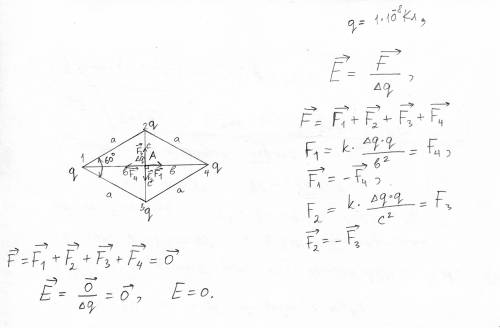 q = 1·10⁻⁸ Кл,
E⃗ = F⃗ / Δq ,
F⃗ = F⃗₁ + F⃗₂ + F⃗₃ + F⃗₄
F₁ = k · Δq·q / в² = F₄ ,
F⃗₁ = −F⃗₄ ,
F₂ = k · Δq·q / c² = F₃
F⃗₂ = −F⃗₃
2 q
a a
F⃗₃ c
1 60° Δq A
q в F⃗₄ F⃗₂ F⃗₁ в 4 q
c
a a
3 q
F⃗ = F⃗₁ + F⃗₂ + F⃗₃ + F⃗₄ = 0⃗
E⃗ = 0⃗ / Δq = 0⃗ , E = 0.